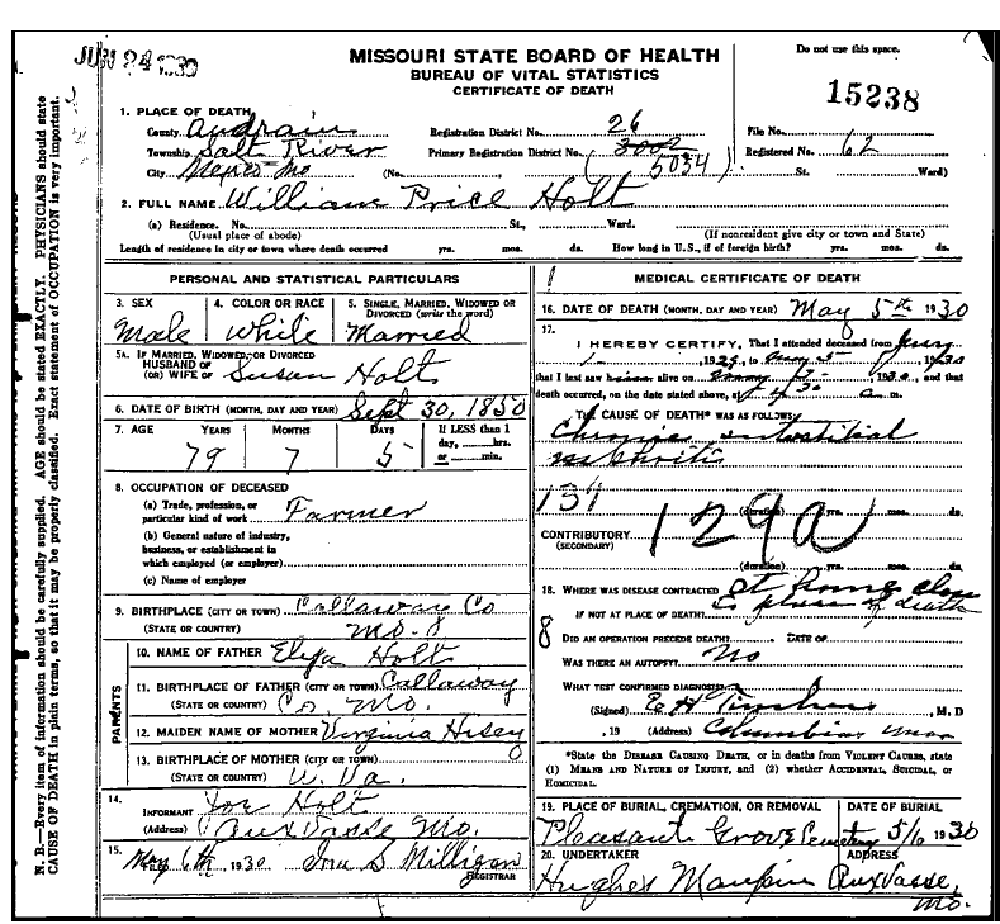 JUN 24 1930
MISSOURI STATE BOARD OF HEALTH
BUREAU OF VITAL STATISTICS
CERTIFICATE OF DEATH
Do not use this space.
15238
1. PLACE OF DEATH
County Audrain Registration District No. 26 File No.
Township Salt River Primary Registration District No. 3002 (5034) Registered No. 62
City Mexico Mo (No. , St. Ward)
2. FULL NAME William Price Holt
(a) Residence. No. St., Ward.
(Usual place of abode) (If nonresident give city or town and State)
Length of residence in city or town where death occurred yrs. mos. ds. How long in U.S., if of foreign birth? yrs. mos. ds.
PERSONAL AND STATISTICAL PARTICULARS
3. SEX 4. COLOR OR RACE 5. SINGLE, MARRIED, WIDOWED OR
DIVORCED (write the word)
Male White Married
5A. IF MARRIED, WIDOWED, OR DIVORCED
HUSBAND OF
(OR) WIFE OF Susan Holt
6. DATE OF BIRTH (MONTH, DAY AND YEAR) Sept 30, 1850
7. AGE YEARS MONTHS DAYS If LESS than 1
day, hrs.
or min.
79 7 5
8. OCCUPATION OF DECEASED
(a) Trade, profession, or
particular kind of work Farmer
(b) General nature of industry,
business, or establishment in
which employed (or employer)
(c) Name of employer
9. BIRTHPLACE (CITY OR TOWN) Callaway Co
(STATE OR COUNTRY) Mo.
PARENTS
10. NAME OF FATHER Holt
11. BIRTHPLACE OF FATHER (CITY OR TOWN) Callaway
(STATE OR COUNTRY) Co. Mo.
12. MAIDEN NAME OF MOTHER Virginia
13. BIRTHPLACE OF MOTHER (CITY OR TOWN)
(STATE OR COUNTRY) W. Va.
14.
INFORMANT Holt
(Address) Auxvasse Mo.
15.
May 6th, 1930 S Milligan
REGISTRAR
MEDICAL CERTIFICATE OF DEATH
16. DATE OF DEATH (MONTH, DAY AND YEAR) May 5th 1930
17.
I HEREBY CERTIFY, That I attended deceased from
1, 1929, to May 5, 1930
that I last saw h alive on , 1930, and that
death occurred, on the date stated above, at m.
THE CAUSE OF DEATH* WAS AS FOLLOWS:
Chronic interstitial
nephritis
131
(duration) yrs. mos. ds.
129a
CONTRIBUTORY
(SECONDARY)
(duration) yrs. mos. ds.
18. WHERE WAS DISEASE CONTRACTED at home
IF NOT AT PLACE OF DEATH? place of death
8
DID AN OPERATION PRECEDE DEATH? DATE OF
WAS THERE AN AUTOPSY? No
WHAT TEST CONFIRMED DIAGNOSIS?
(Signed) E H , M. D
, 19 (Address) Columbia
*State the DISEASE CAUSING DEATH, or in deaths from VIOLENT CAUSES, state
(1) MEANS AND NATURE OF INJURY, and (2) whether ACCIDENTAL, SUICIDAL, or
HOMICIDAL.
19. PLACE OF BURIAL, CREMATION, OR REMOVAL DATE OF BURIAL
Pleasant Grove Cemetery 5/6 1930
20. UNDERTAKER ADDRESS
Hughes Maupin Auxvasse,
Mo.
N. B.—Every item of information should be carefully supplied. AGE should be stated EXACTLY. PHYSICIANS should state
CAUSE OF DEATH in plain terms, so that it may be properly classified. Exact statement of OCCUPATION is very important.